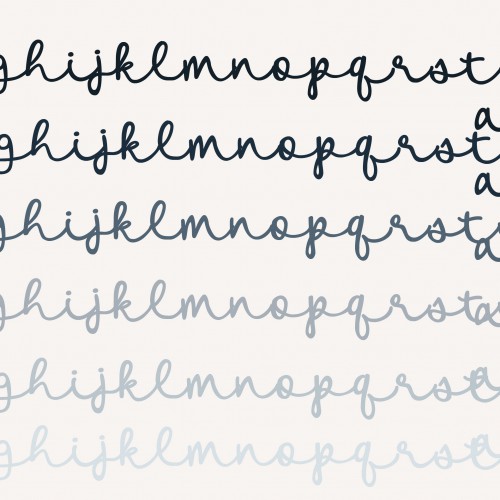 ghijklmnopqrst
a
ghijklmnopqrst
a
ghijklmnopqrst
a
ghijklmnopqrst
a
ghijklmnopqrst
a
ghijklmnopqrst
a